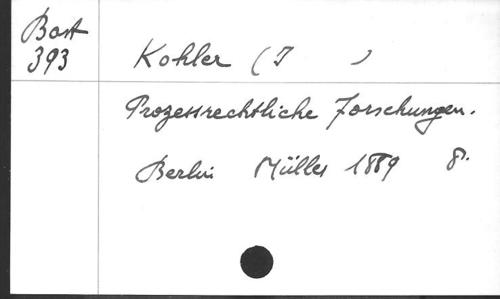 Bast
393
Kohler (J )
Prozessrechtliche Forschungen.
Berlin Müller 1889 8°.